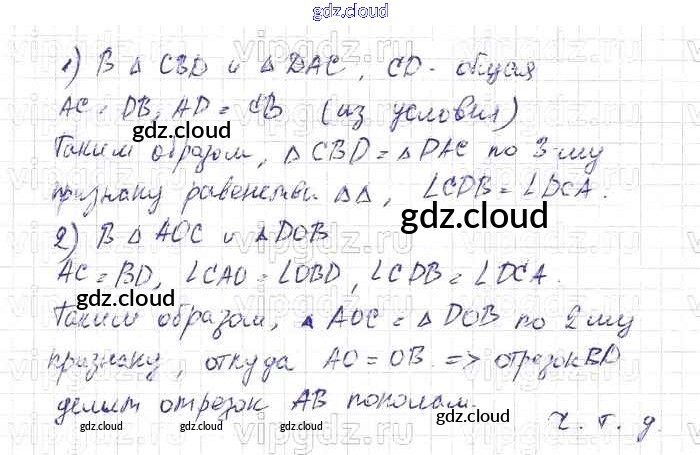 gdz.cloud
1) В △ CBD и △ DAC, CD - общая
AC = DB, AD = CB (из условия)
gdz.cloud
Таким образом, △ CBD = △ DAC по 3-му
признаку равенства △△, ∠CDB = ∠DCA.
gdz.cloud
2) В △ AOC и △ DOB
AC = BD, ∠CAO = ∠OBD, ∠CDB = ∠DCA.
gdz.cloud
Таким образом, △ AOC = △ DOB по 2му
признаку, откуда AO = OB => отрезок BD
делит отрезок AB пополам.
ч. т. д.
gdz.cloud gdz.cloud gdz.cloud